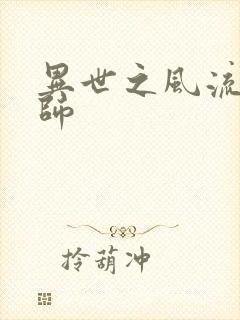 異世之風流
師
拎葫冲